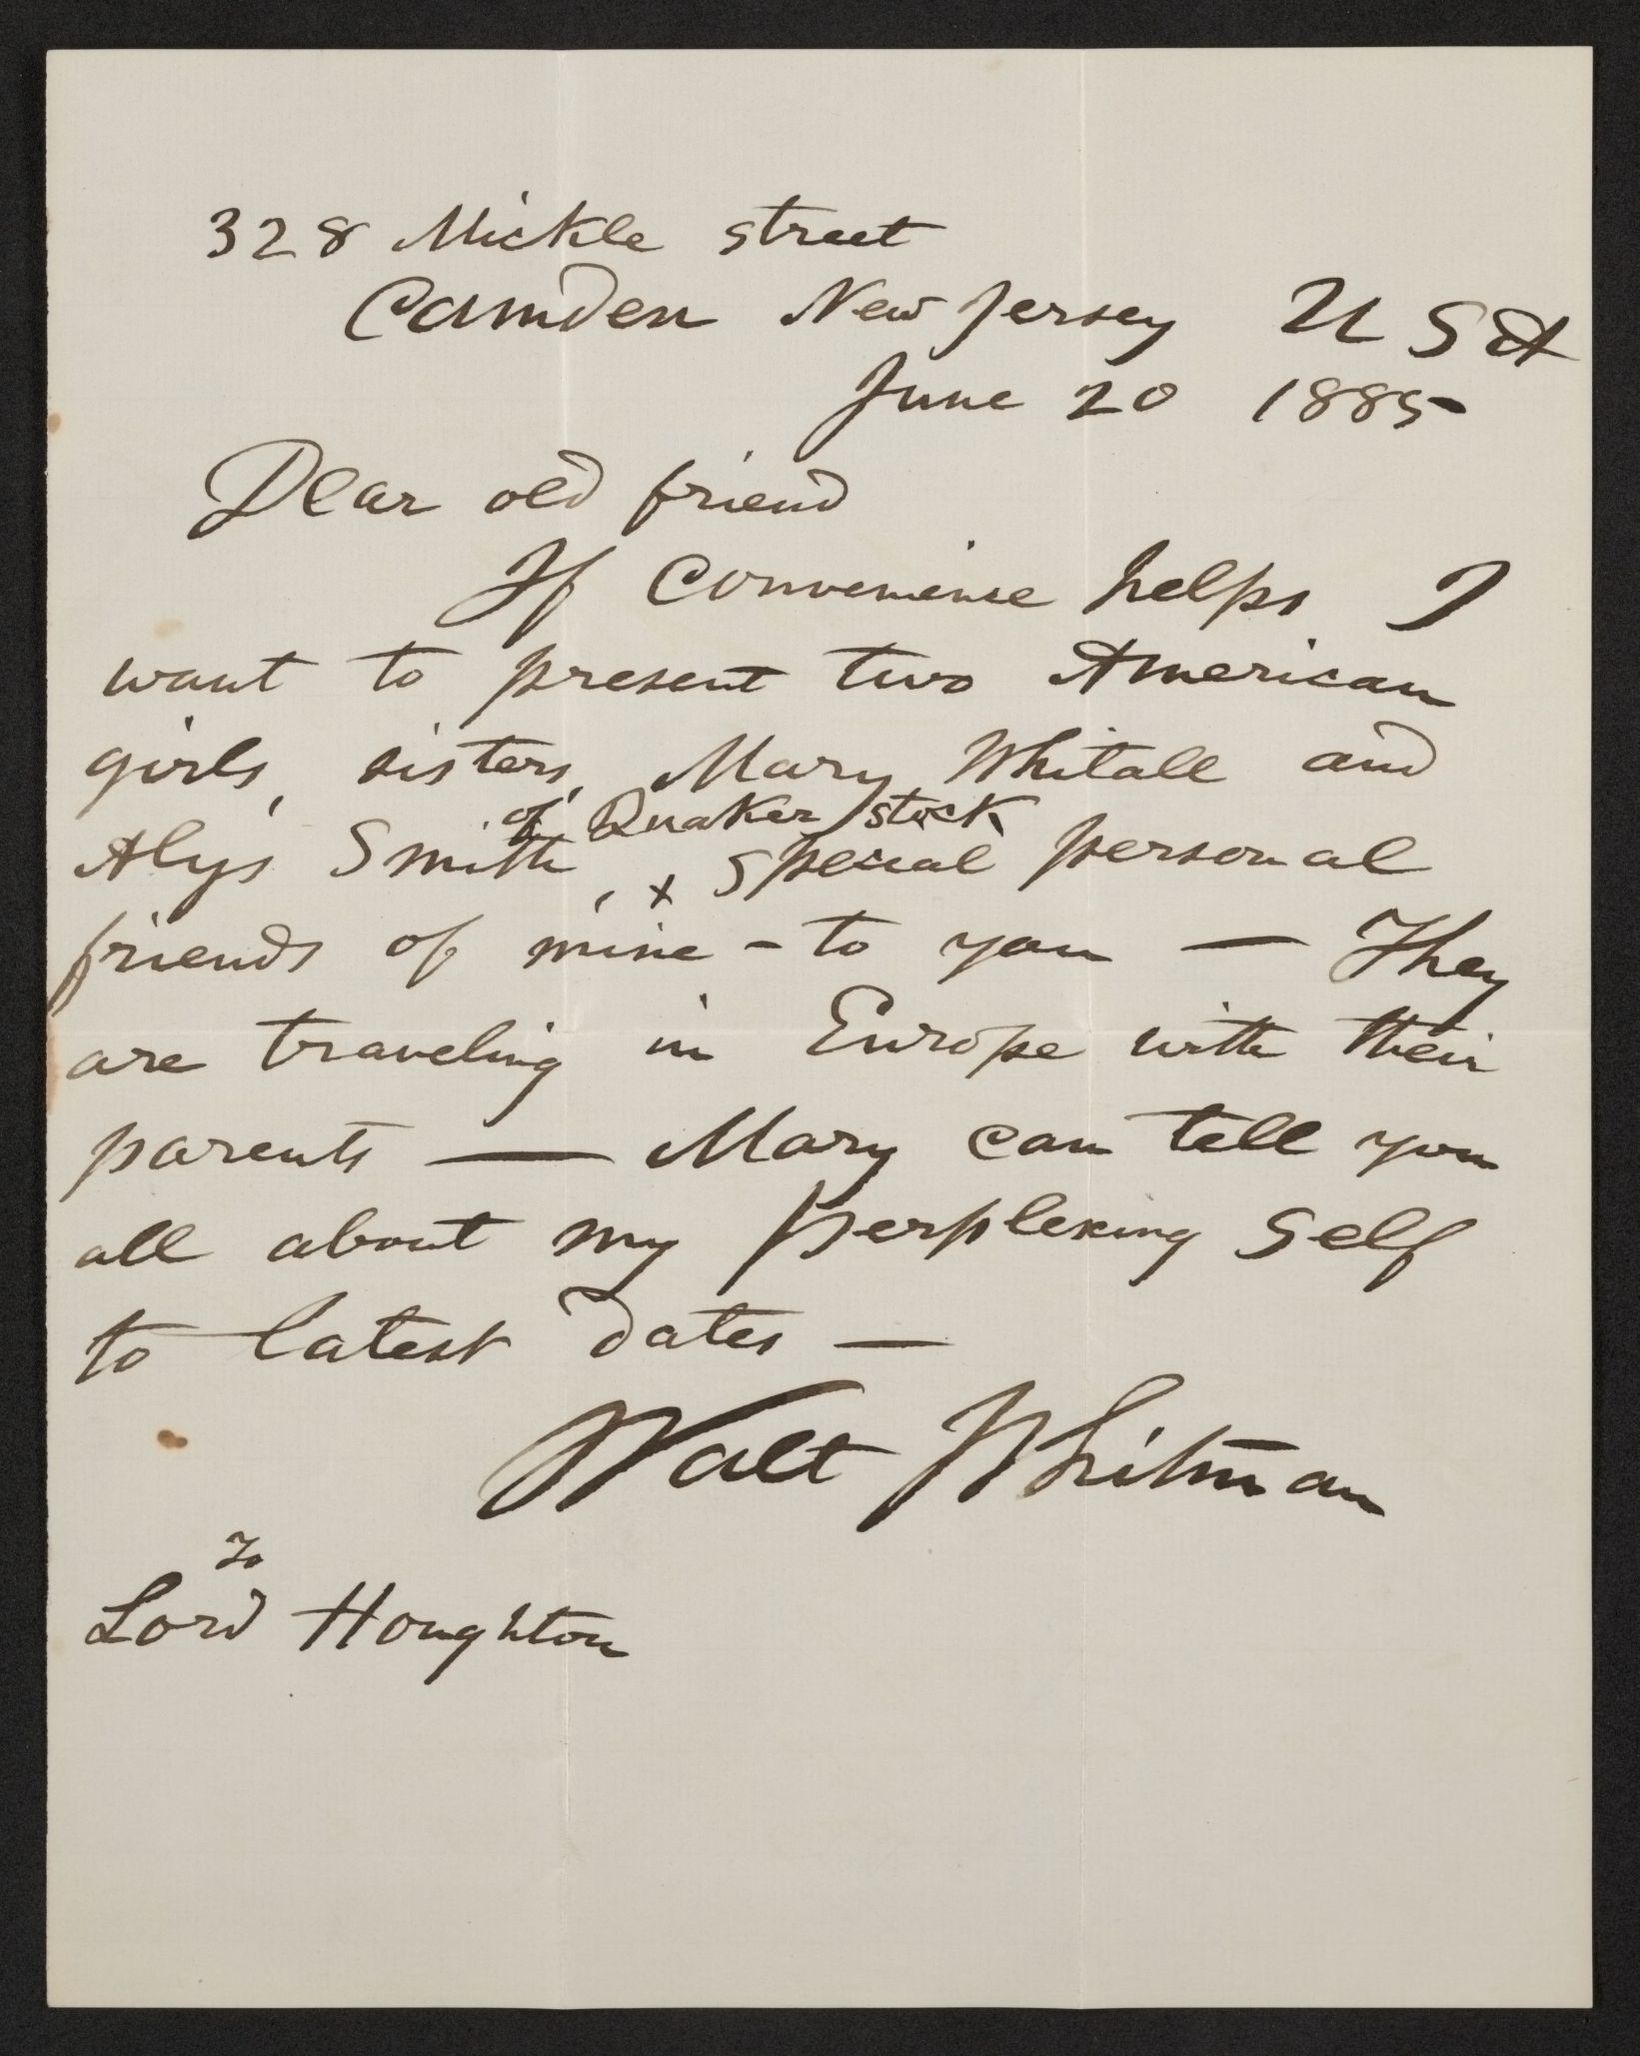 328 Mickle street
Camden New Jersey U S A
June 20 1885
Dear old friend
If convenience helps I
want to present two American
girls, sisters, Mary Whitall and
of Quaker stock
Alys Smith, & special personal
friends of mine - to you — They
are traveling in Europe with their
parents — Mary can tell you
all about my perplexing self
to latest dates —
Walt Whitman
To
Lord Houghton